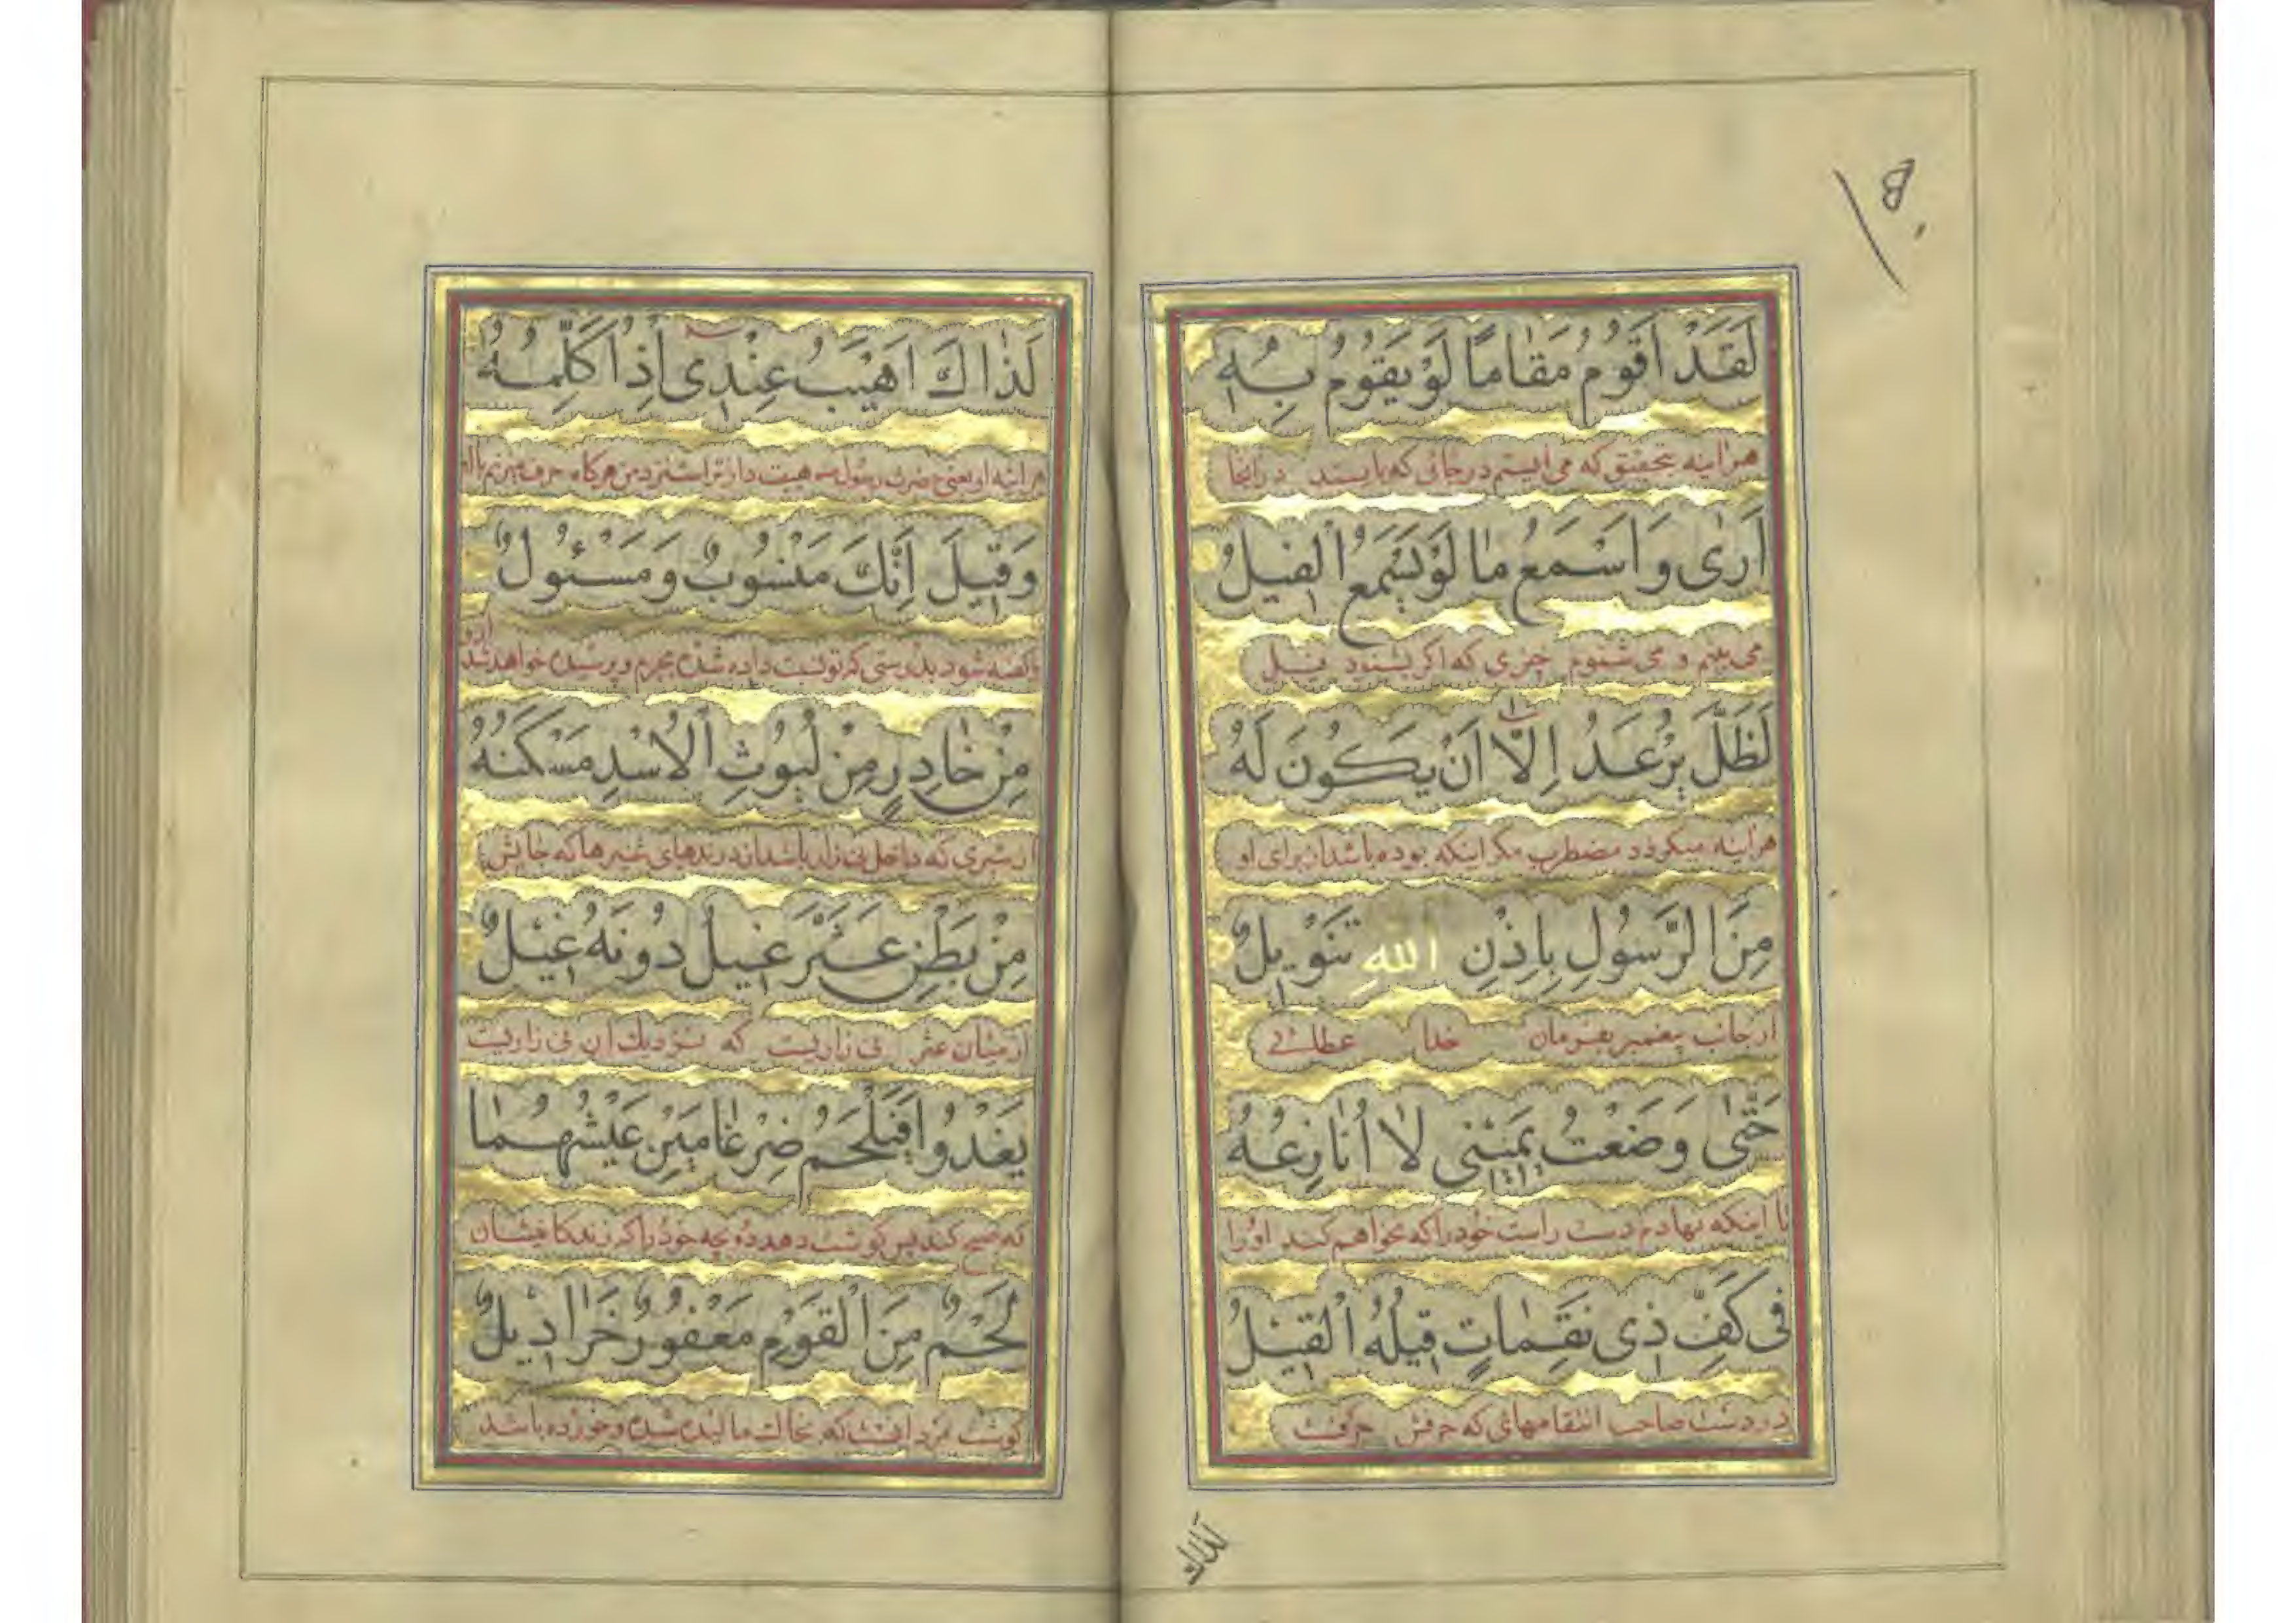 لَقَدْ اَقُومُ مَقامًا لَوْ يَقُومُ بِهِ
هراینه بتحقیق که می ایستم در جائی که بایستد در انجا
اَرىٰ وَ اَسْمَعُ ما لَوْ يَسْمَعُ الْفيلُ
می بینم و می شنوم چیزی که اگر بشنود فیل
لَظَلَّ يُرْعَدُ اِلّا اَنْ يَكُونَ لَهُ
هراینه میکردد مضطرب مکر اینکه بوده باشد از برای او
مِنَ الرَّسُولِ بِاِذْنِ اللهِ تَنْويلٌ
از جانب پیغمبر بفرمان خدا عطائی
حَتّىٰ وَضَعْتُ يَميني لا اُنازِعُهُ
تا اینکه نهادم دست راست خود را که نخواهم کند او را
في كَفِّ ذي نَقَماتٍ قيلُهُ الْقيلُ
در دست صاحب انتقامهای که حرفش حرفست
لذلك
لَذاكَ اَهْيَبُ عِنْدي اِذْ اُكَلِّمُهُ
هراینه او یعنی حضرت رسول هیبت دارتر است نزد من هرکاه حرف میزنم با او
وَقيلَ اِنَّكَ مَنْسُوبٌ وَ مَسْئُولٌ
وکفته شود بدرستی که تو نسبت داده شدهٔ بجرم و پرسیده خواهد شد از تو
مِنْ خادِرٍ مِنْ لُيُوثِ الْاُسْدِ مَسْكَنُهُ
از شیری که داخل نی زار باشد از درندهای شیرها که جایش
مِنْ بَطْنِ عَثَّرَ غيلٌ دُونَهُ غيلٌ
از میان عثر نی زاریست که نزدیك ان نی زاریست
يَغْدُوا فَيُلْحِمُ ضِرْغامَيْنِ عَيْشُهُما
که صبح کند پس کوشت دهد دو بچه خود را که زندکانیشان
لَحْمٌ مِنَ الْقَوْمِ مَعْفُورٌ خَراديلُ
کوشت مرد انست که بخاك مالیده شده و خورده باشد